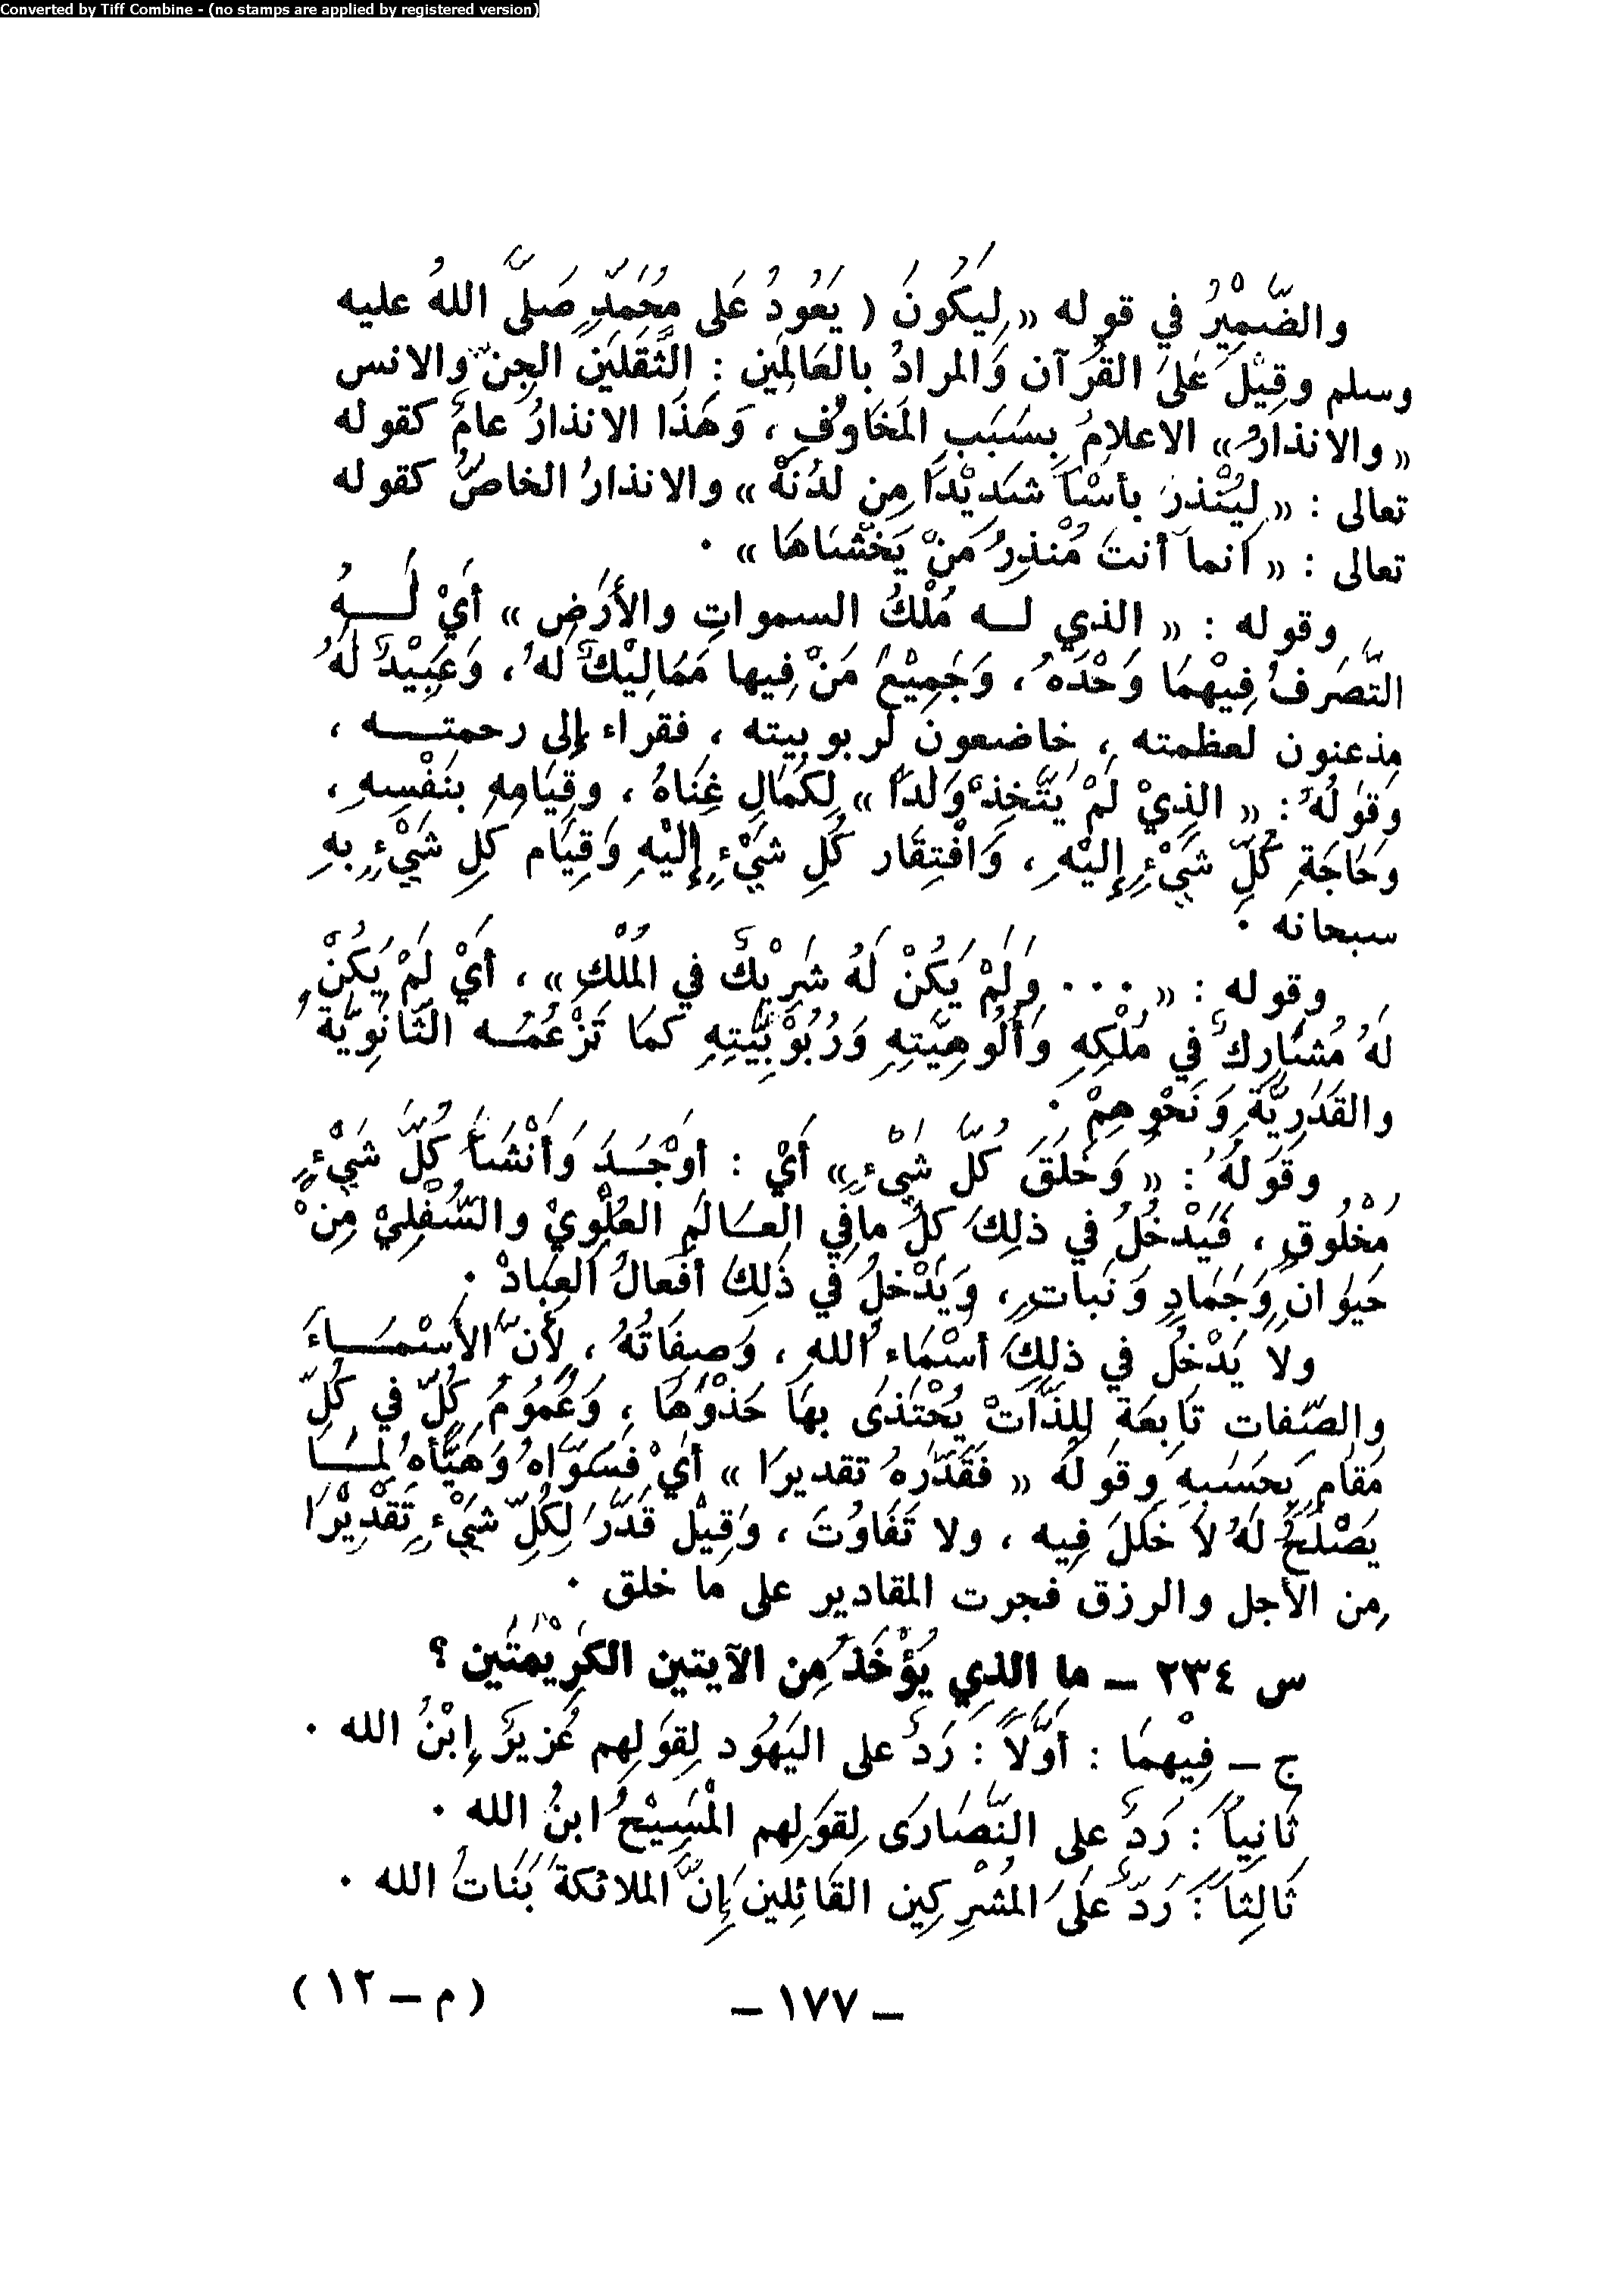 Converted by Tiff Combine - (no stamps are applied by registered version)
والضَّمِيْرُ في قوله « لِيَكُونَ ( يَعُودُ عَلى مُحَمَدٍ صَلىَّ اللهُ عليه
وسلم وقِيْلَ عَلىَ القُرآن وَالمرادُ بالعَالَمِين : الثَّقَلَيْن الجِنّ والانس
« والانذارُ» الاعلامُ بِسَبَبِ المَخَاوُفِ ، وَهَذَا الانذارُ عامٌ كقوله
تعالى : « لِيُنْذرَ بأسْاً شَدِيْدَاً مِن لَدُنهْ » والانذارُ الخاصُّ كقوله
تعالى : « انما أنتَ مُنْذِرُ مَنْ يَخْشَاهَا » ٠
وقوله : « الذي لــه مُلْكُ السمواتِ والأرَضِ » أيْ لَــهُ
التَّصَرفُ فِيْهمَا وَحْدَهُ ، وَجَمِيْعُ مَنْ فِيها مَمَالِيْكٌ لَهُ ، وَعَبِيْدٌ لَهُ
مذعنون لعظمته ، خاضعون لربوبيته ، فقراء إلى رحمتــه ،
وَقَولُهُ : « الذِيْ لَمْ يَتَّخِذْ وَلَداً » لِكَمَالِ غِنَاهُ ، وقِيَامِهِ بنَفْسِهِ ،
وَحَاجَةِ كُلِّ شَيْءٍ إِليْهِ ، وَافْتِقَار كُلِ شَيْءٍ إِليْهِ وَقِيَام كلِ شَيْءٍ بهِ
سبحانه ٠
وقوله : « ٠٠٠ وَلَمْ يَكُنْ لَهُ شَرِيْكٌ في المُلْكِ » ، أيْ لَمْ يَكُنْ
لَهُ مُشَارِكٌ في مُلْكِهِ وَأُلُوهِيَّتِهِ وَرُبُوْبِيَّتِهِ كمَا تَزْعُمُــه الثَّانَوِيَّةُ
والقَدَرِيَّةِ وَنَحْوهِمْ ٠
وقَولُهُ : « وَخَلَقَ كُلَّ شَيْءٍ » أيْ : أوْجَــدَ وَأنْشَأ كُلَّ شَيْءٍ
مَخْلُوقٍ ، فَيَدْخُلُ في ذلِكَ كلُ مافي العَالَمِ العُلْوِيْ والسُّفْلِيْ مِنْ
حَيوَانٍ وَجَمَادٍ وَنَباتٍ ، وَيَدْخلُ في ذَلِكَ أفْعَالُ العِبَادْ ٠
ولا يَدْخُلُ في ذلِكَ أسْمَاء اللهِ ، وَصِفَاتُهُ ، لأنَّ الأسْمَــاءَ
والصّفات تَابِعَةٌ لِلذَّاتْ يُحْتَذَى بهَا حَذْوُهَا ، وَعُمُوْمُ كُلّ في كُلِّ
مَقامٍ بحَسَبهِ وقَولُه « فَقَدَّرَهُ تقديرَا » أيْ فَسَوَّاهُ وَهَيَّأهُ لِمَــا
يَصْلُحُ لَهُ لاَ خَلَلَ فِيه ، ولا تَفَاوُتَ ، وَقِيْلَ قَدَّرَ لِكُلِّ شَيْءٍ تَقْدِيْرَا
مِن الأجل والرزق فجرت المقادير على ما خلق ٠
س ٢٣٤ ــ ما الذِي يُؤْخَذُ مِن الآيتين الكَرِيْمَتَين ؟
ج ــ فِيْهمَا : أوَّلاً : رَدٌ على اليَهُود لِقَولِهم عُزيرٌ إِبْنُ الله ٠
ثَانِياً : رَدٌ على النَّصَارَى لِقَولِهم المْسِيْحُ ابنُ الله ٠
ثَالِثاً : رَدٌّ عَلىَ المُشْرِكِين القَائِلين إِنَّ الملائكةَ بَنَاتُ الله ٠
ــ ١٧٧ ــ
( م ــ ١٢ )